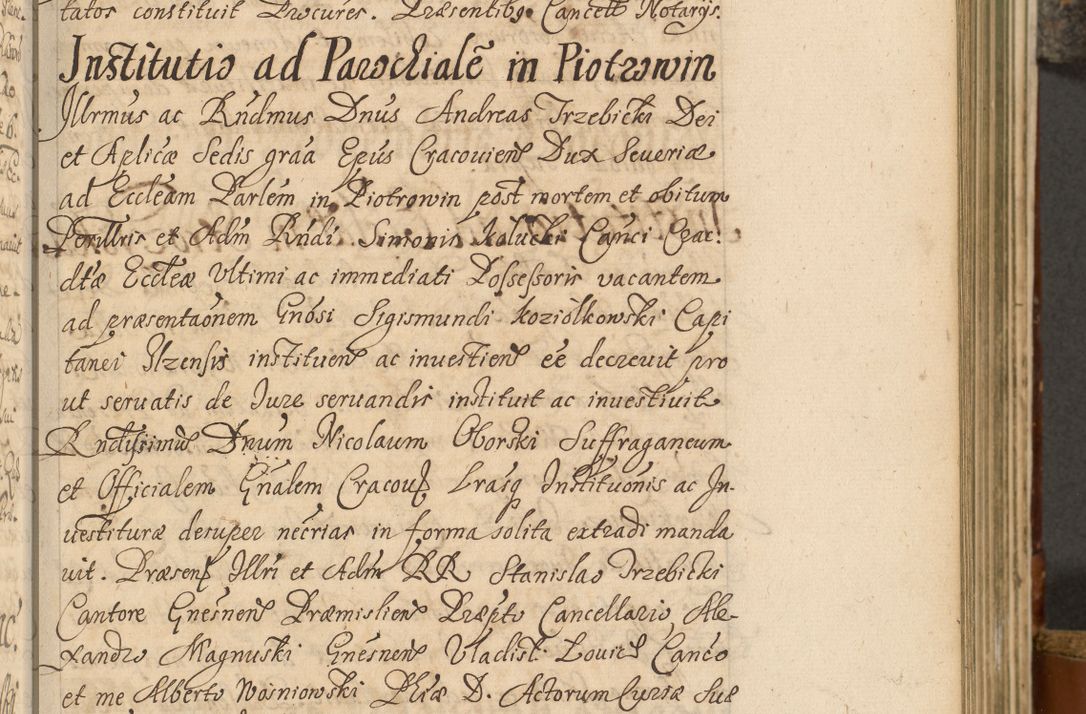 tatos constituit Procures. Præsentibq Cancell Notarijs.
Institutio ad Parochialē in Piotrowin
Illrmus ac Rndmus Dnus Andreas Trzebicki Dei
et Aplicæ Sedis graa Epus Cracovien Dux Severiæ
ad Eccleam Parlem in Piotrowin post mortem et obitum
Perillris et Adm Rndi Simonis Kalucki Canci Crac:
dtæ Eccleæ Vltimi ac immediati Possessoris vacantem
ad præsentaonem Gnosi Sigismundi Koziolkowski Capi
tanei Ilzensis instituen ac investien eē decrevit pro
ut servatis de Jure servandis instituit ac investivit
Rndissimu Dnum Nicolaum Oborski Suffraganeum
et Officialem Gnalem Cracou Lrasq Instituonis ac In-
vestituræ desuper necrias in forma solita extradi manda
vit. Præsen Illri et Adm RR Stanislao Trzebicki
Cantore Gnesnen Præmislien Præpto Cancellario Ale-
xandro Magnuski Gnesnen Vladisl: Lovic Canco
et me Alberto Wosniowski Phiæ D. Actorum Curiæ Suæ